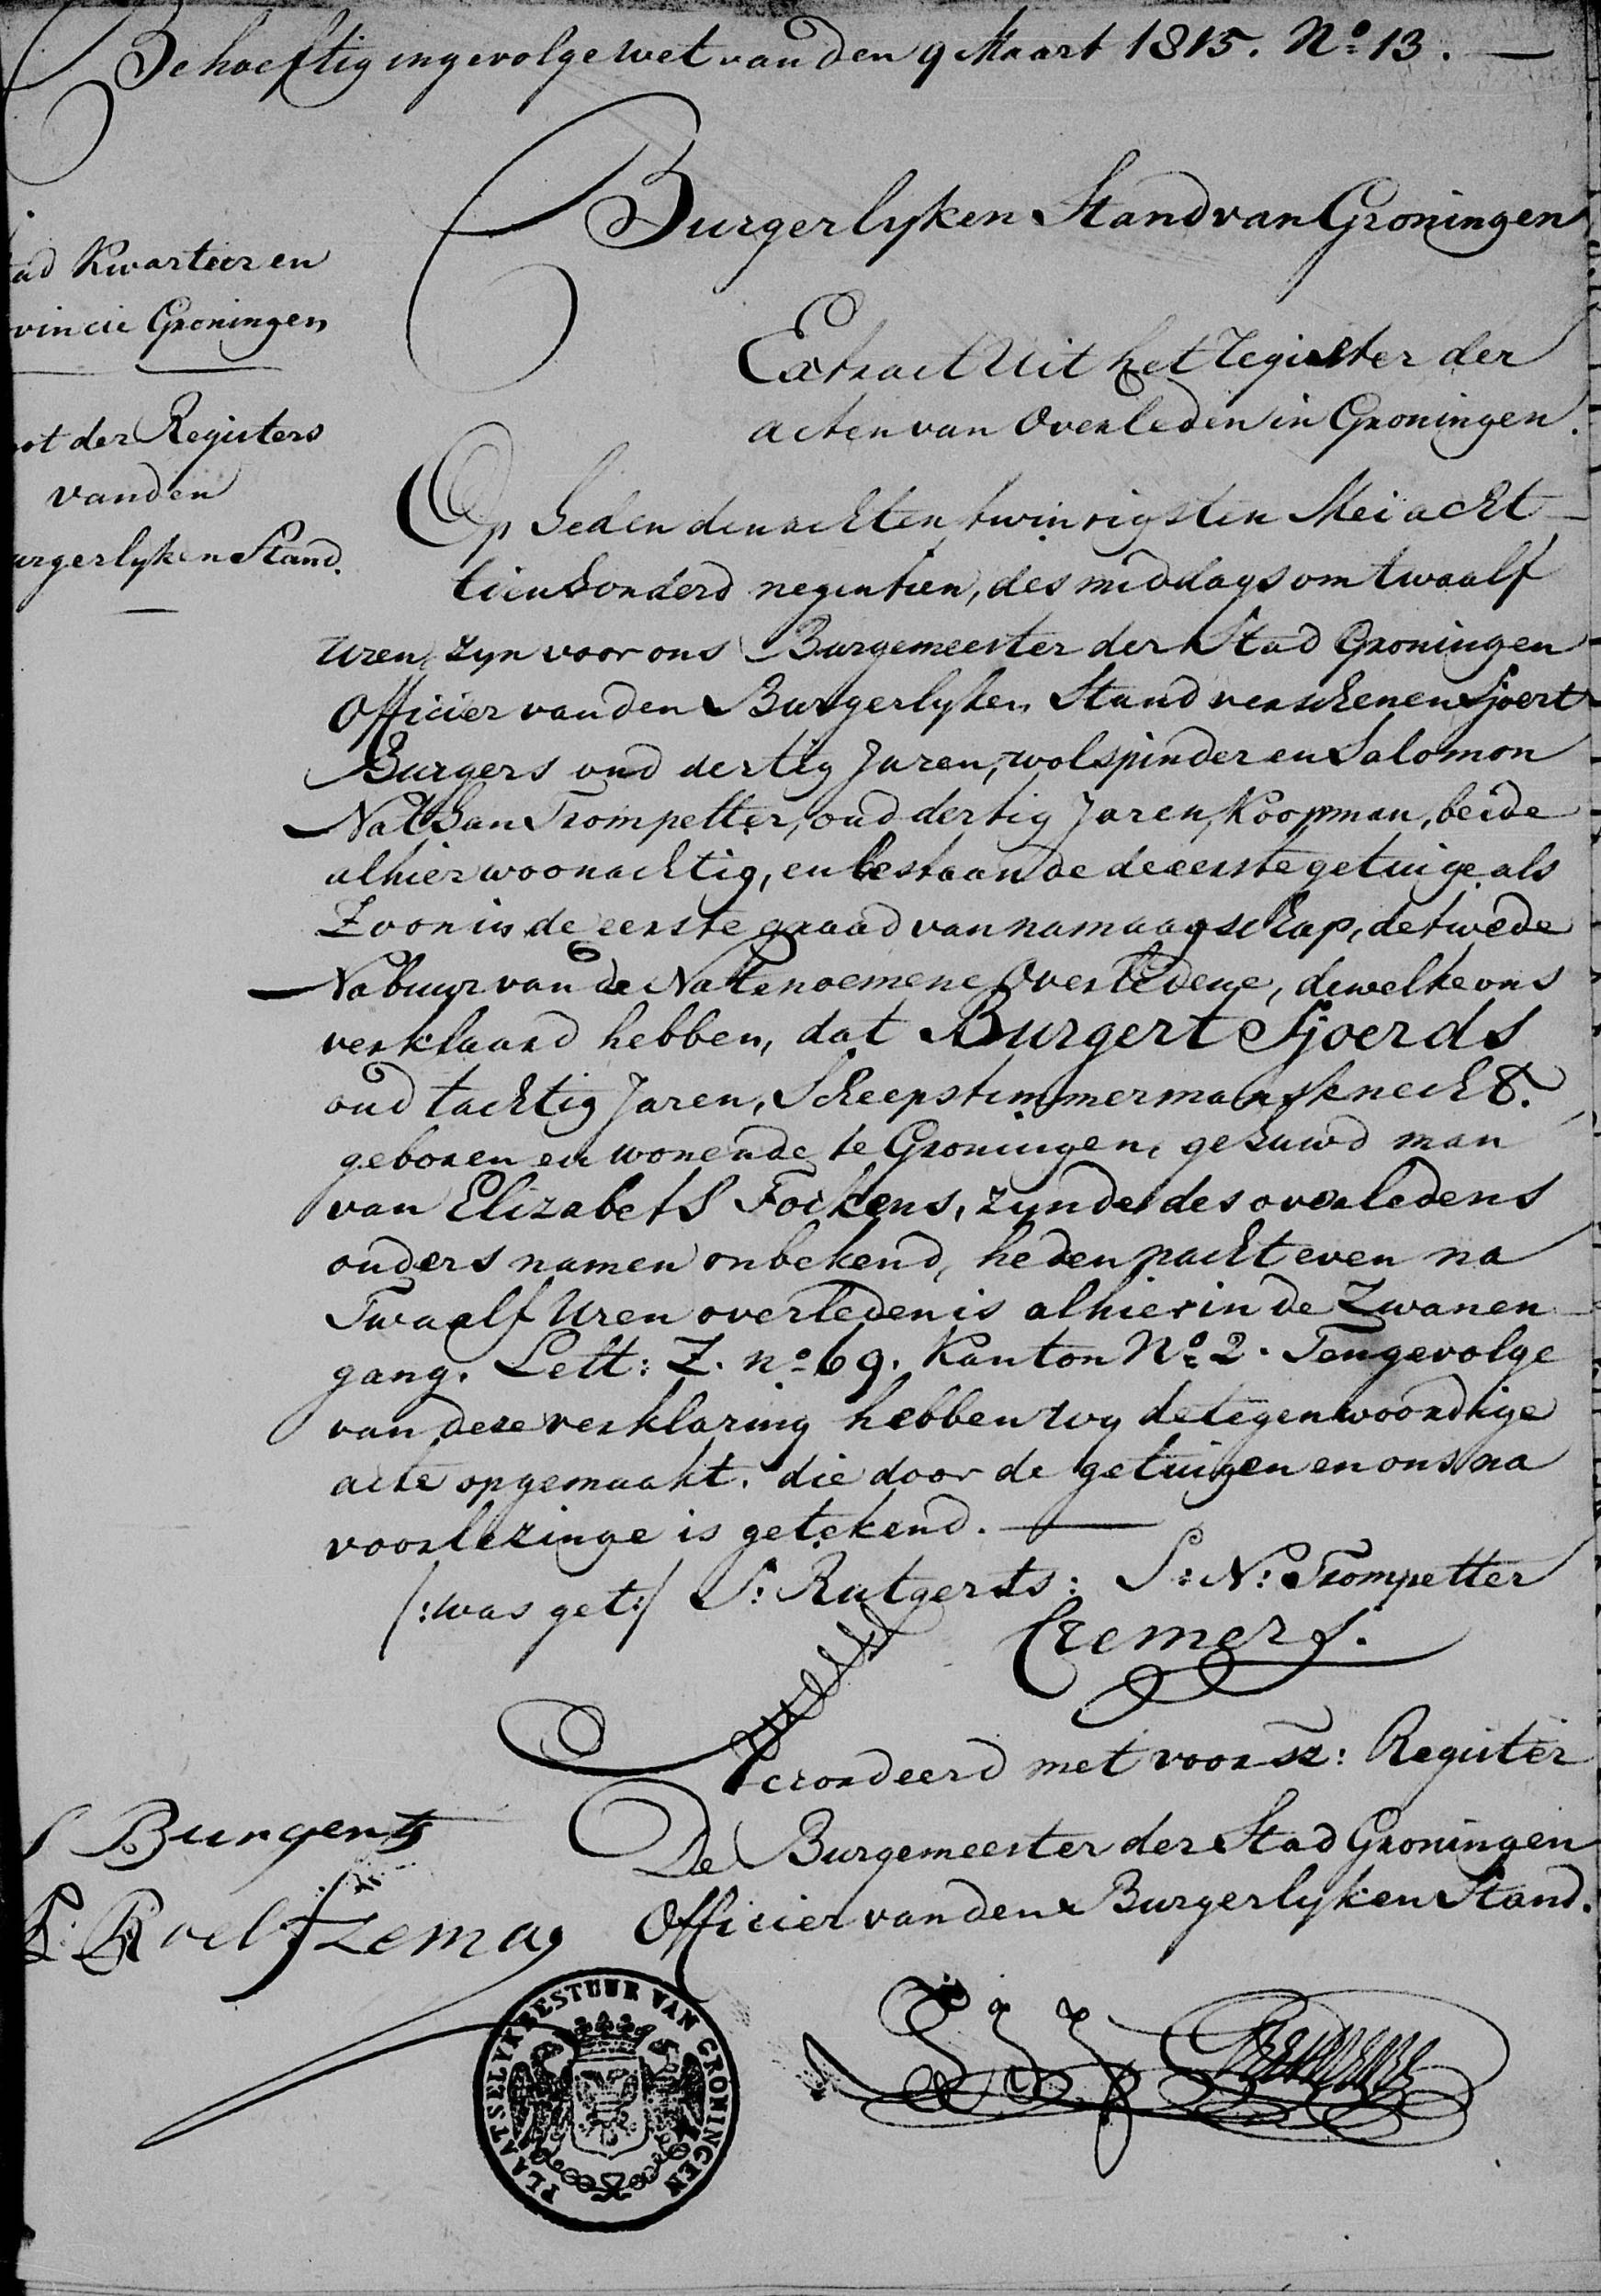 Behoeftig ingevolge wet van den 9 Maart 1815. No. 13. —
Burgerlyken Stand van Groningen
ad Kwartier en
vincie Groningen
ot der Registers
van den
urgerlyken Stand.
Extract Uit het Register der
acten van Overleden in Groningen.
Op heden den achten twintigsten Mei acht
tien honderd negentien, des middags om twaalf
uren, zyn voor ons Burgemeester der Stad Groningen
Officier van den Burgerlyken Stand verschenen Sjoert
Burgers oud dertig Jaren, wolspinder en Salomon
Nathan Trompetter, oud dertig Jaren, Koopman, beide
alhier woonachtig, en bestaande de eerste getuige als
Zoon in de eerste graad van namaagschap, de twede
Nabuur van de Natenoemene Overledene, dewelke ons
verklaard hebben, dat Burgert Sjoerds
oud tachtig Jaren, Scheepstimmermansknecht.
geboren en wonende te Groningen, gehuwd man
van Elizabeth Fockens, zynde des overledens
ouders namen onbekend, heden nacht even na
Twaalf Uren overleden is alhier in de Zwanen
gang. Lett: Z. no 69. Kanton No. 2. Tengevolge
van deze verklaring hebben wy de tegenwoordige
acte opgemaakt. die door de getuigen en ons na
voorlezinge is getekend. —
/:was get:/ S: Rutgerts: S: N: Trompetter
Cremers.
Accordeerd met voorsz: Register
De Burgemeester der Stad Groningen
Officier van den Burgerlyken Stand.
S Burgerts
Roelfzema
PLAATSELYK BESTUUR VAN GRONINGEN